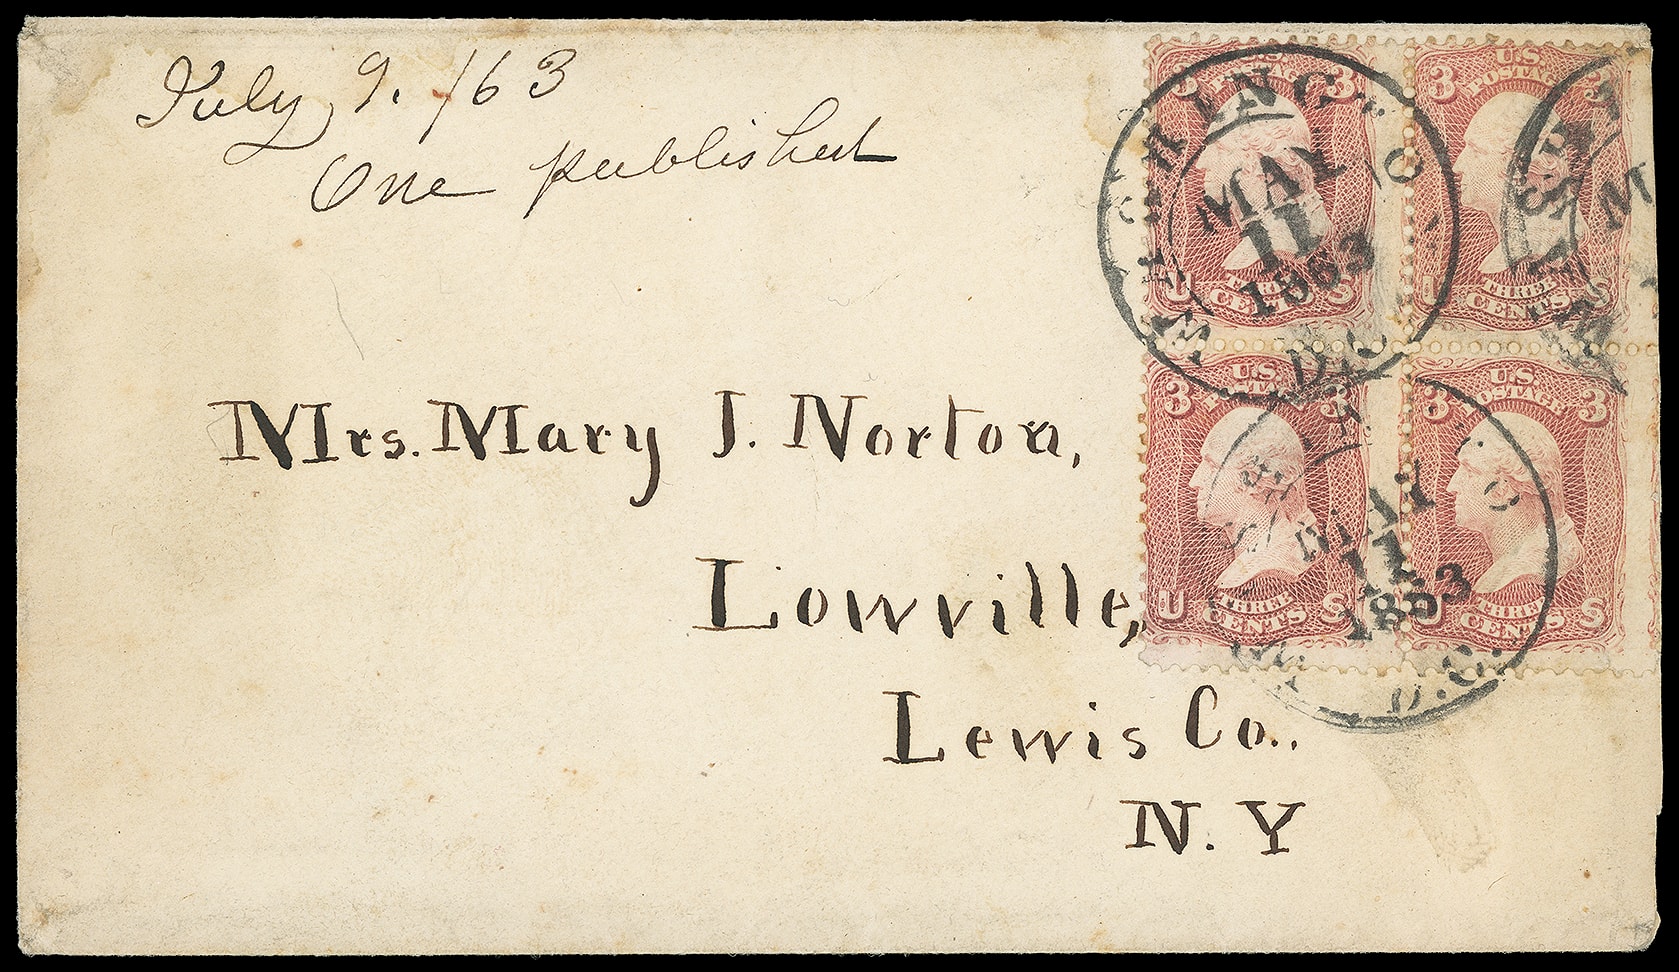 July 9. /63
One published
Mrs. Mary J. Norton,
Lowville,
Lewis Co..
N. Y
U.S.
POSTAGE
3 3
U S
THREE
CENTS
U.S.
POSTAGE
3 3
U S
THREE
CENTS
U.S.
POSTAGE
3 3
U S
THREE
CENTS
U.S.
POSTAGE
3 3
U S
THREE
CENTS
WASHINGTON
MAY
11
1863
D.C.
MAY
11
1863
D.C.